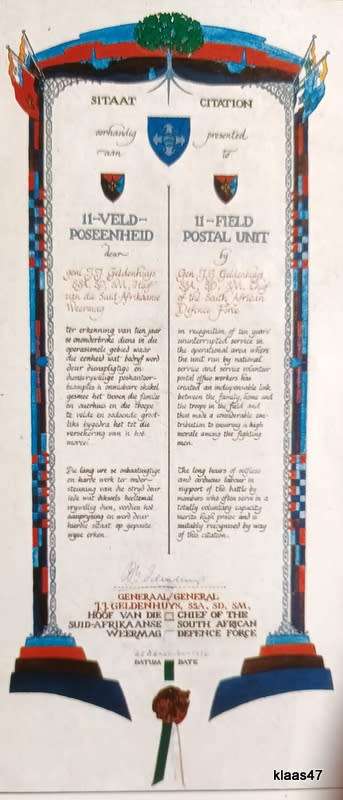 SITAAT
oorhandig
aan
11-VELD-
POSEENHEID
deur
genl J.J. Geldenhuys
SSA, SD, SM, Hoof
van die Suid Afrikaanse
Weermag
ter erkenning van tien jaar
se ononderbroke diens in die
operasionele gebied waar
die eenheid wat bedryf word
deur dienspligtige en
diensvrywillige poskantoor-
'n onmisbare skakel
gesmee het tussen die familie
en tuerhuis en die troepe
te velde en sodoende groot-
liks bygedra het tot die
versekering van 'n hoë
moreel
Die lang ure se onbaatsugtige
en harde werk ter onder-
steuning van die stryd deur
lede wat dikwels heeltemal
vrywillig dien, verdien hoë
aanprysing en word deur
hierdie sitaat op gepaste
wyse erken.
CITATION
presented
to
11-FIELD
POSTAL UNIT
by
Gen J.J. Geldenhuys
SSA, SD, SM, Chief
of the South African
Defence Force
in recognition of ten years'
uninterrupted service in
the operational area where
the unit run by national
service and service volunteer
postal office workers has
created an indispensable link
between the family, home and
the troops in the field and
thus made a considerable con-
tribution to ensuring a high
morale among the fighting
men.
The long hours of selfless
and arduous labour in
support of the battle by
members who often serve in a
totally voluntary capacity
merits high praise and is
suitably recognised by way
of this citation.
GENERAAL/GENERAL
J.J. GELDENHUYS, SSA, SD, SM,
HOOF VAN DIE CHIEF OF THE
SUID-AFRIKAANSE SOUTH AFRICAN
WEERMAG DEFENCE FORCE
DATUM DATE
klaas47